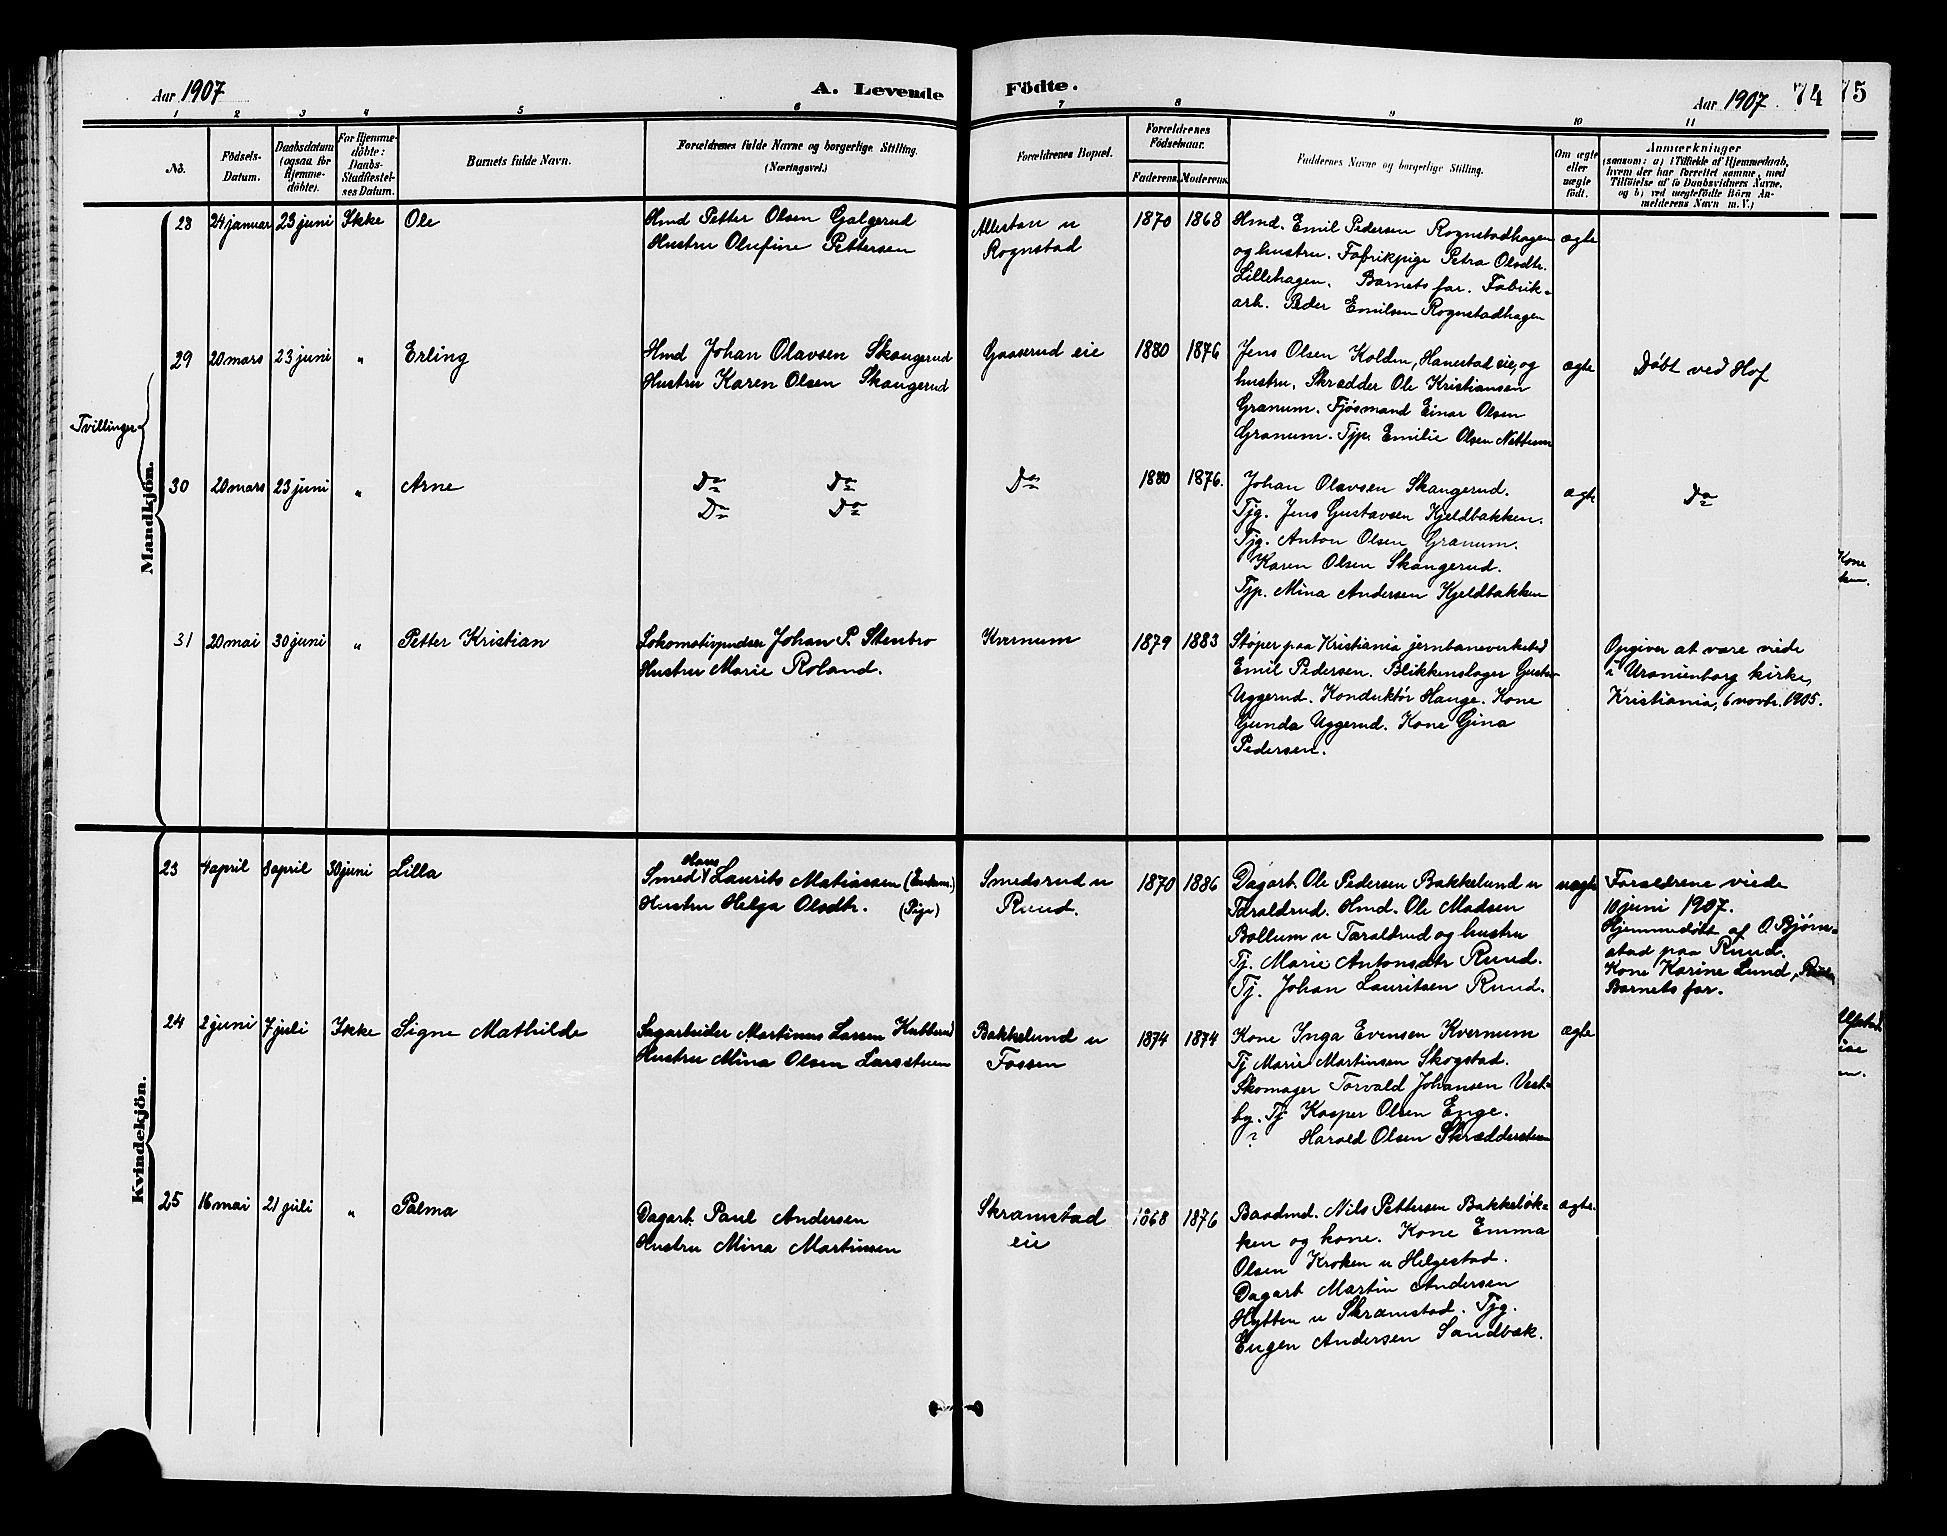 Aar 1907
A. Levende
Födte.
Aar 1907
74
75
1 2 3 4 5 6 7 8 9 10 11
No.
Födsels-
Datum.
Daabsdatum
(ogsaa for
Hjemme-
döbte).
For Hjemme-
döbte:
Daabs-
Stadfæstel-
ses Datum.
Barnets fulde Navn.
Forældrenes fulde Navne og borgerlige Stilling.
(Næringsvei.)
Forældrenes Bopæl.
Forældrenes
Födselsaar.
Faderens.
Moderens.
Faddernes Navne og borgerlige Stilling.
Om ægte
eller
uægte
født.
Anmærkninger
(saasom: a) i Tilfælde af Hjemmedaab,
hvem der har forrettet samme, med
Tilføielse af to Daabsvidners Navne,
og b) ved uægtefödte Börn An-
melderens Navn m. V.)
Mandkjön.
28 24 januar 23 juni Ikke Ole
Hmd Petter Olsen Galgerud
Hustru Olufine Pettersen
Allestan u
Rognstad
1870 1868
Hmd. Emil Pedersen Rognstadhagen
og hustru. Fabrikpige Petra Olsdtr.
Lillehagen. Barnets far. Fabrik-
arb. Peder Emilsen Rognstadhagen
ægte
Tvillinger
29 20 mars 23 juni " Erling
Hmd Johan Olavsen Skangerud
Hustru Karen Olsen Skangerud
Gaaserud eie
1880 1876
Jens Olsen Kolden, Hanestad eie, og
hustru. Skrædder Ole Kristiansen
Granum. Fjøsmand Einar Olsen
Granum. Tjp. Emilie Olsen Nettum
ægte
Døbt ved Hof
30 20 mars 23 juni " Arne
Do Do
Do Do
Do
1880 1876.
Johan Olavsen Skangerud.
Tjg. Jens Gustavsen Kjeldbakken.
Tjg. Anton Olsen Granum.
Karen Olsen Skangerud.
Tjp. Mina Andersen Kjeldbakken
ægte
Do
31 20 mai 30 juni " Petter Kristian
Lokomotivpudser Johan P. Stenbro
Hustru Marie Roland.
Kvernum
1879 1883
Støper paa Kristiania jernbaneverksted
Emil Pedersen. Blikkenslager Gustav
Uggerud. Konduktør Hauge. Kone
Gunda Uggerud. Kone Gina
Pedersen.
Opgiver at være viede
i Uranienborg kirke,
Kristiania, 6 novbr. 1905.
Kvindekjön.
23 4 april 8 april 30 juni Lilla
Hans
Smed Laurits Matiassen (Enkem.)
Hustru Helga Olsdtr. (Pige)
Smedsrud u
Ruud.
1870 1886
Dagarb. Ole Pedersen Bakkelund u
Taraldrud. Hmd. Ole Madsen
Bollum u Taraldrud og hustru
Tj. Marie Antonsdtr Ruud.
Tj. Johan Lauritsen Ruud.
uægte
Forældrene viede
10 juni 1907.
Hjemmedøbt af O. Bjørn-
stad paa Ruud.
Kone Karine Lund,
Barnets far.
24 2 juni 7 juli Ikke Signe Mathilde
Sagarbeider Martinus Larsen Kubberud
Hustru Mina Olsen Larsstuen
Bakkelund u
Fossen
1874 1874
Kone Inga Evensen Kvernum
Tj Marie Martinsen Skogstad.
Skomager Torvald Johansen Vest-
by. Tj Kasper Olsen Enge.
? Harald Olsen Skrædderstuen
ægte
25 16 mai 21 juli " Palma
Dagarb. Paul Andersen
Hustru Mina Martinsen
Skramstad
eie
1868 1876
Baadmd. Nils Pettersen Bakkeløk-
ken og kone. Kone Emma
Olsen Kroken u Helgestad.
Dagarb Martin Andersen
Hytten u Skramstad. Tjg.
Eugen Andersen Sandbæk.
ægte.
Kone